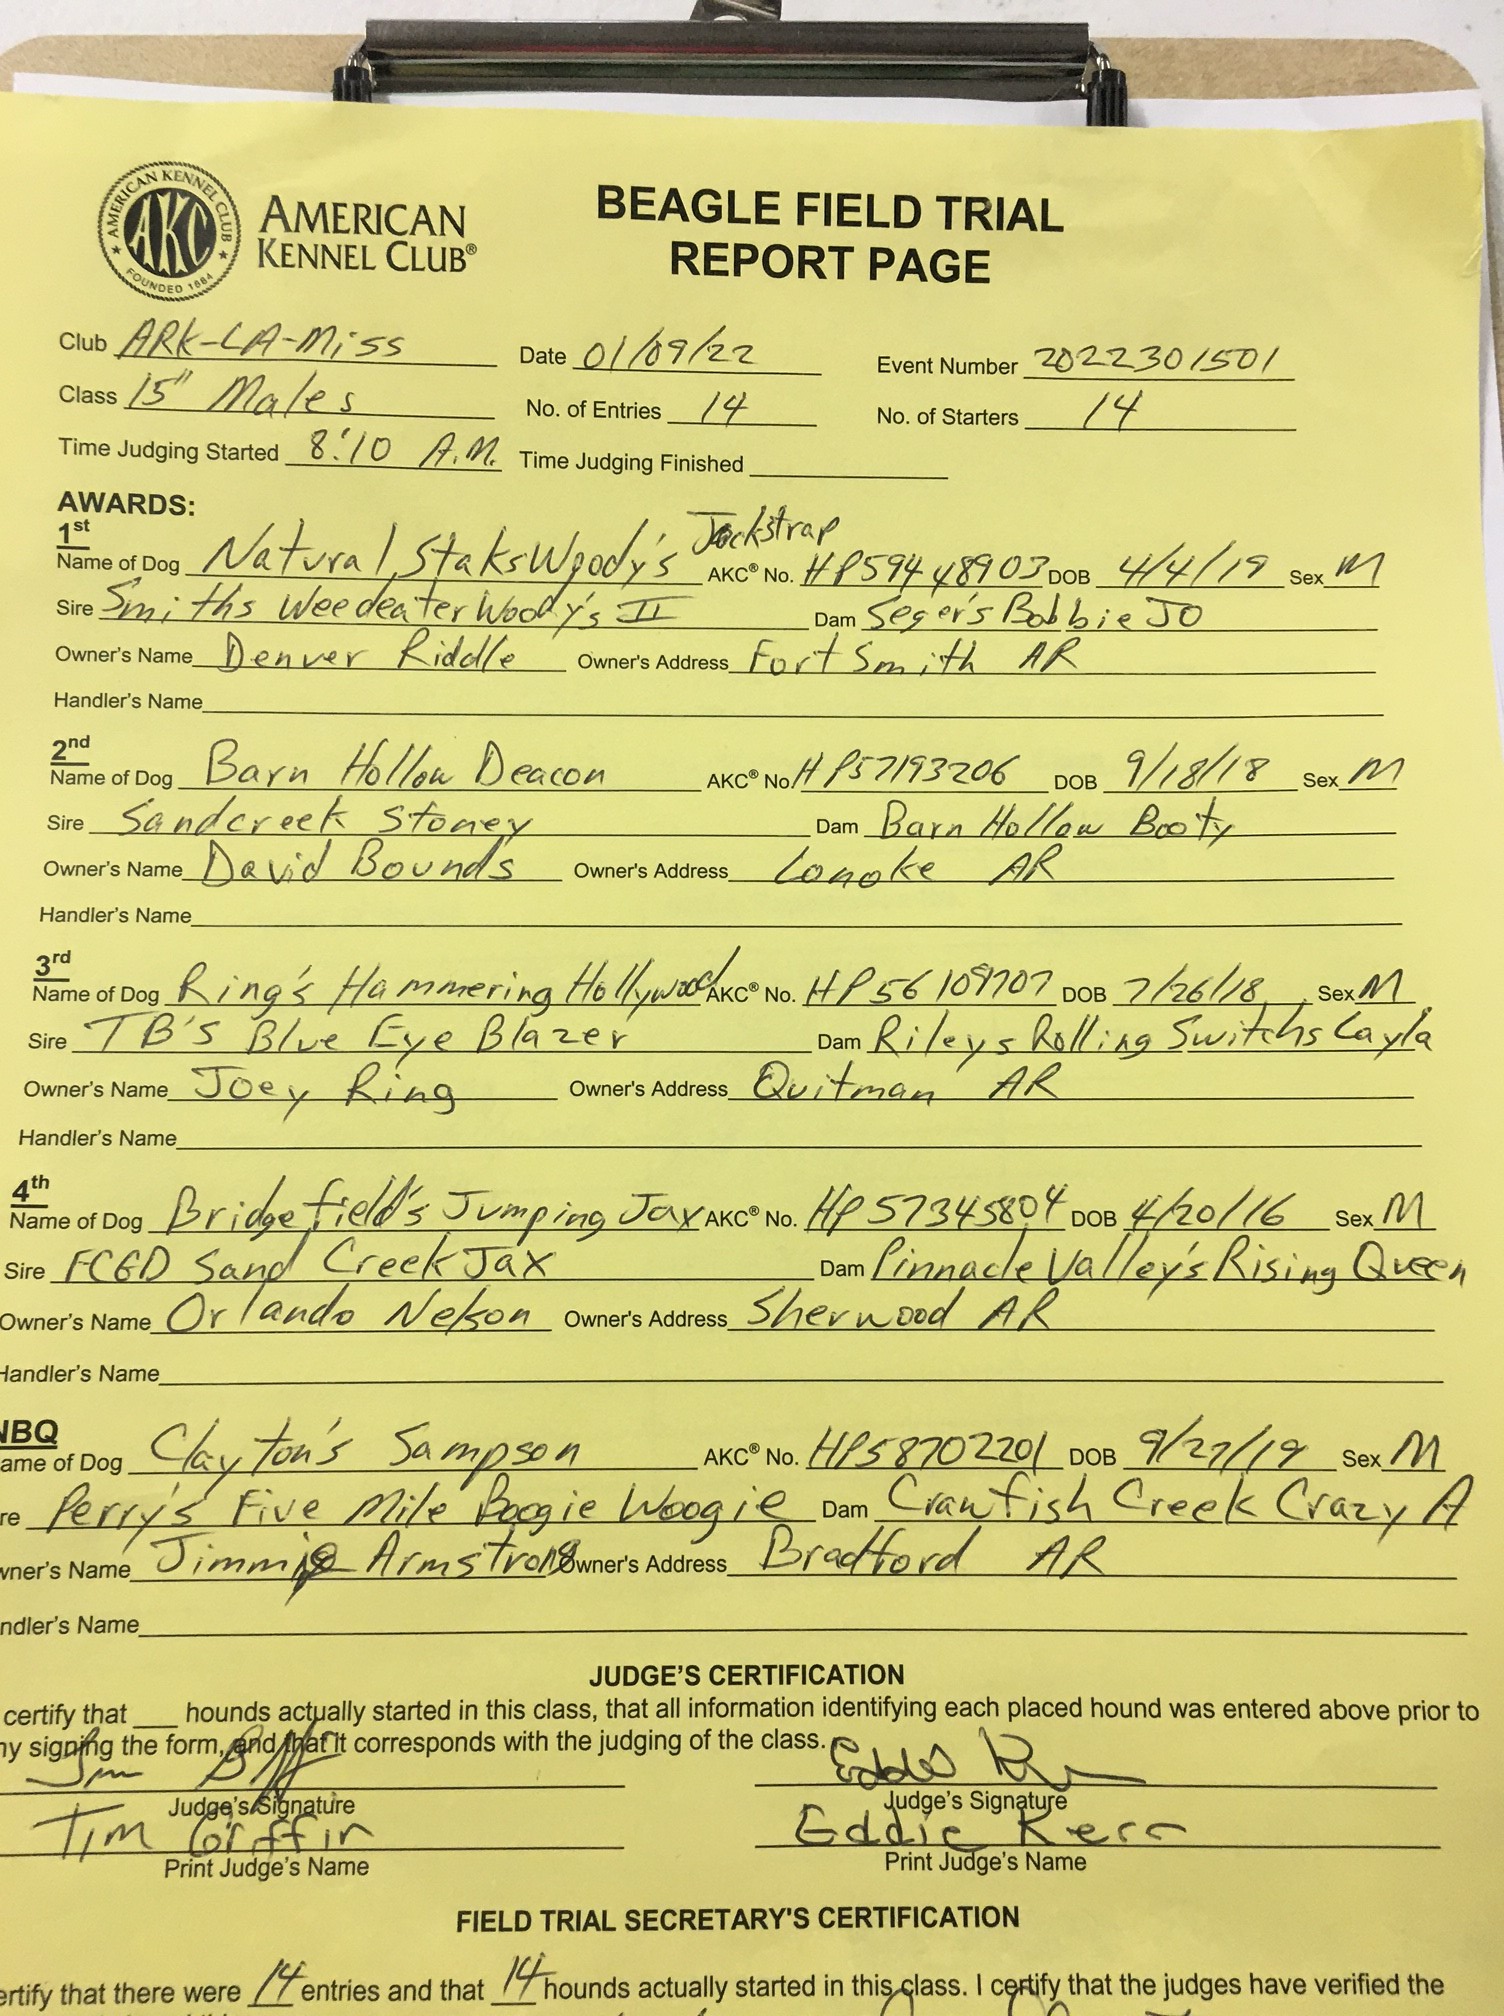 AMERICAN KENNEL CLUB
AKC
FOUNDED 1884
AMERICAN
KENNEL CLUB®
BEAGLE FIELD TRIAL
REPORT PAGE
Club ARK-LA-Miss Date 01/09/22 Event Number 2022301501
Class 15" Males No. of Entries 14 No. of Starters 14
Time Judging Started 8:10 A.M. Time Judging Finished
AWARDS:
1st
Name of Dog Natural StaksWoody's Jockstrap AKC® No. HP59448903 DOB 4/4/19 Sex M
Sire Smiths Weedeater Woody's II Dam Seger's Bobbie JO
Owner's Name Denver Riddle Owner's Address Fort Smith AR
Handler's Name
2nd
Name of Dog Barn Hollow Deacon AKC® No. HP57193206 DOB 9/18/18 Sex M
Sire Sandcreek Stoney Dam Barn Hollow Booty
Owner's Name David Bounds Owner's Address Lonoke AR
Handler's Name
3rd
Name of Dog Ring's Hammering Hollywood AKC® No. HP56109707 DOB 7/26/18 Sex M
Sire TB'S Blue Eye Blazer Dam Rileys Rolling Switchs Layla
Owner's Name Joey Ring Owner's Address Quitman AR
Handler's Name
4th
Name of Dog Bridgefield's Jumping Jax AKC® No. HP57345804 DOB 4/20/16 Sex M
Sire FCGD Sand Creek Jax Dam Pinnacle Valley's Rising Queen
Owner's Name Orlando Nelson Owner's Address Sherwood AR
Handler's Name
NBQ
ame of Dog Clayton's Sampson AKC® No. HP58702201 DOB 9/27/19 Sex M
re Perry's Five Mile Boogie Woogie Dam Crawfish Creek Crazy A
wner's Name Jimmie Armstrong Owner's Address Bradford AR
ndler's Name
JUDGE'S CERTIFICATION
certify that ___ hounds actually started in this class, that all information identifying each placed hound was entered above prior to
my signing the form, and that it corresponds with the judging of the class.
Judge's Signature Judge's Signature
Tim Griffin Eddie Kerr
Print Judge's Name Print Judge's Name
FIELD TRIAL SECRETARY'S CERTIFICATION
ertify that there were 14 entries and that 14 hounds actually started in this class. I certify that the judges have verified the